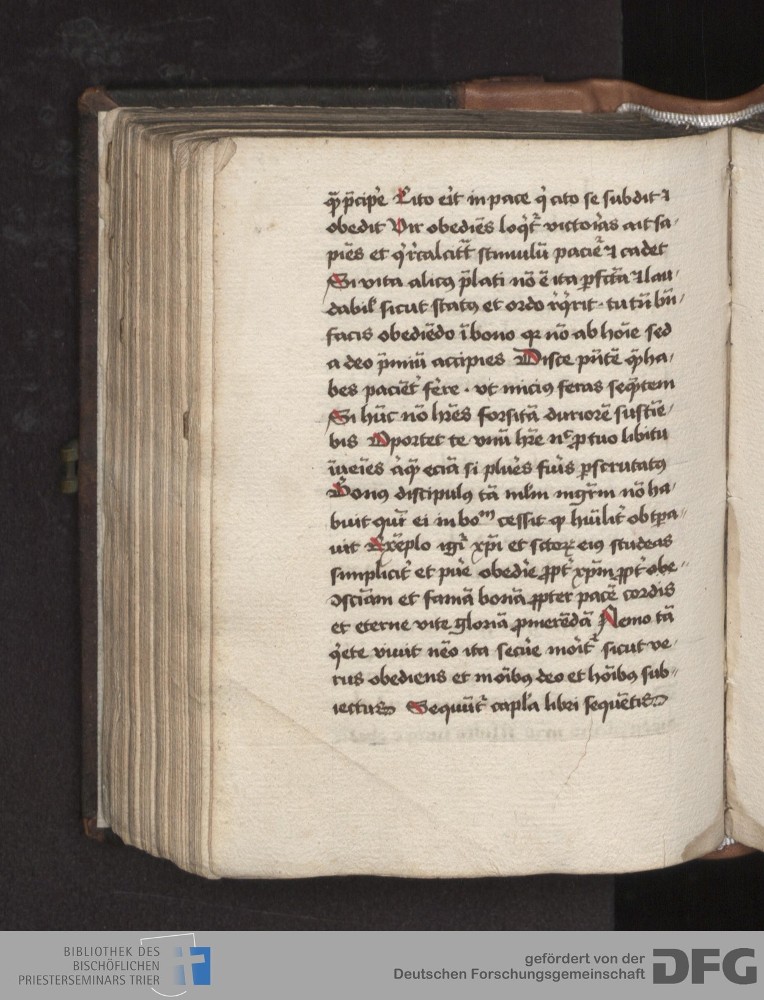 qꝫ p̄cipe Cito eīt in pace q̇ cito se subdit ⁊
obedit Vir obediēs loq̇t᷑ victorīas ait sa⸗
piēs et q̇ r̄calcit᷑ stimulū pacīe ⁊ cadet
Si vita alicꝰ p̄lati nō ē ita ꝑfc̄ta ⁊ lau⸗
dabil sicut statꝰ et ordo r̄q̇rit · tu tn̄ bn̄
facis obediēdo ī bono qꝛ nō ab hoīe sed
a deo p̄miū accipies Disce
bes pacīet᷑ fērre · vt micius feras seq̄ntem
Si hūc nō hr̄es forsitā duriorē sustīe⸗
bis Oportet te vnū hr̄e n̄ ꝓ tuo libitu
īueīes eciā si plures fūis ꝑscrutatꝰ
Bonꝰ discipulꝰ tā mlm̄ mgr̄m nō ha⸗
buit quī ei in boᵐ cessit qꝫ hūilit᷑ obtꝑa⸗
uit Exēplo igī xp̄i et sctōꝝ eiꝰ studeas
simplicit᷑ et pūe obedīe ꝓpt᷑ xp̄m ꝓpt᷑ obe⸗
ꝯsciām et famā bonā ꝓpter pacē cordis
et eterne vite gloriā ꝓmerēdā Nemo tā
q̇ete viuit nē̄o ita secūe morit᷑ sicut ve⸗
rus obediens et in oībꝰ deo et hoībꝰ sub⸗
iectus Sequūt᷑ capl̄a libri sequētis
BIBLIOTHEK DES
BISCHÖFLICHEN
PRIESTERSEMINARS TRIER
gefördert von der
Deutschen Forschungsgemeinschaft
DFG